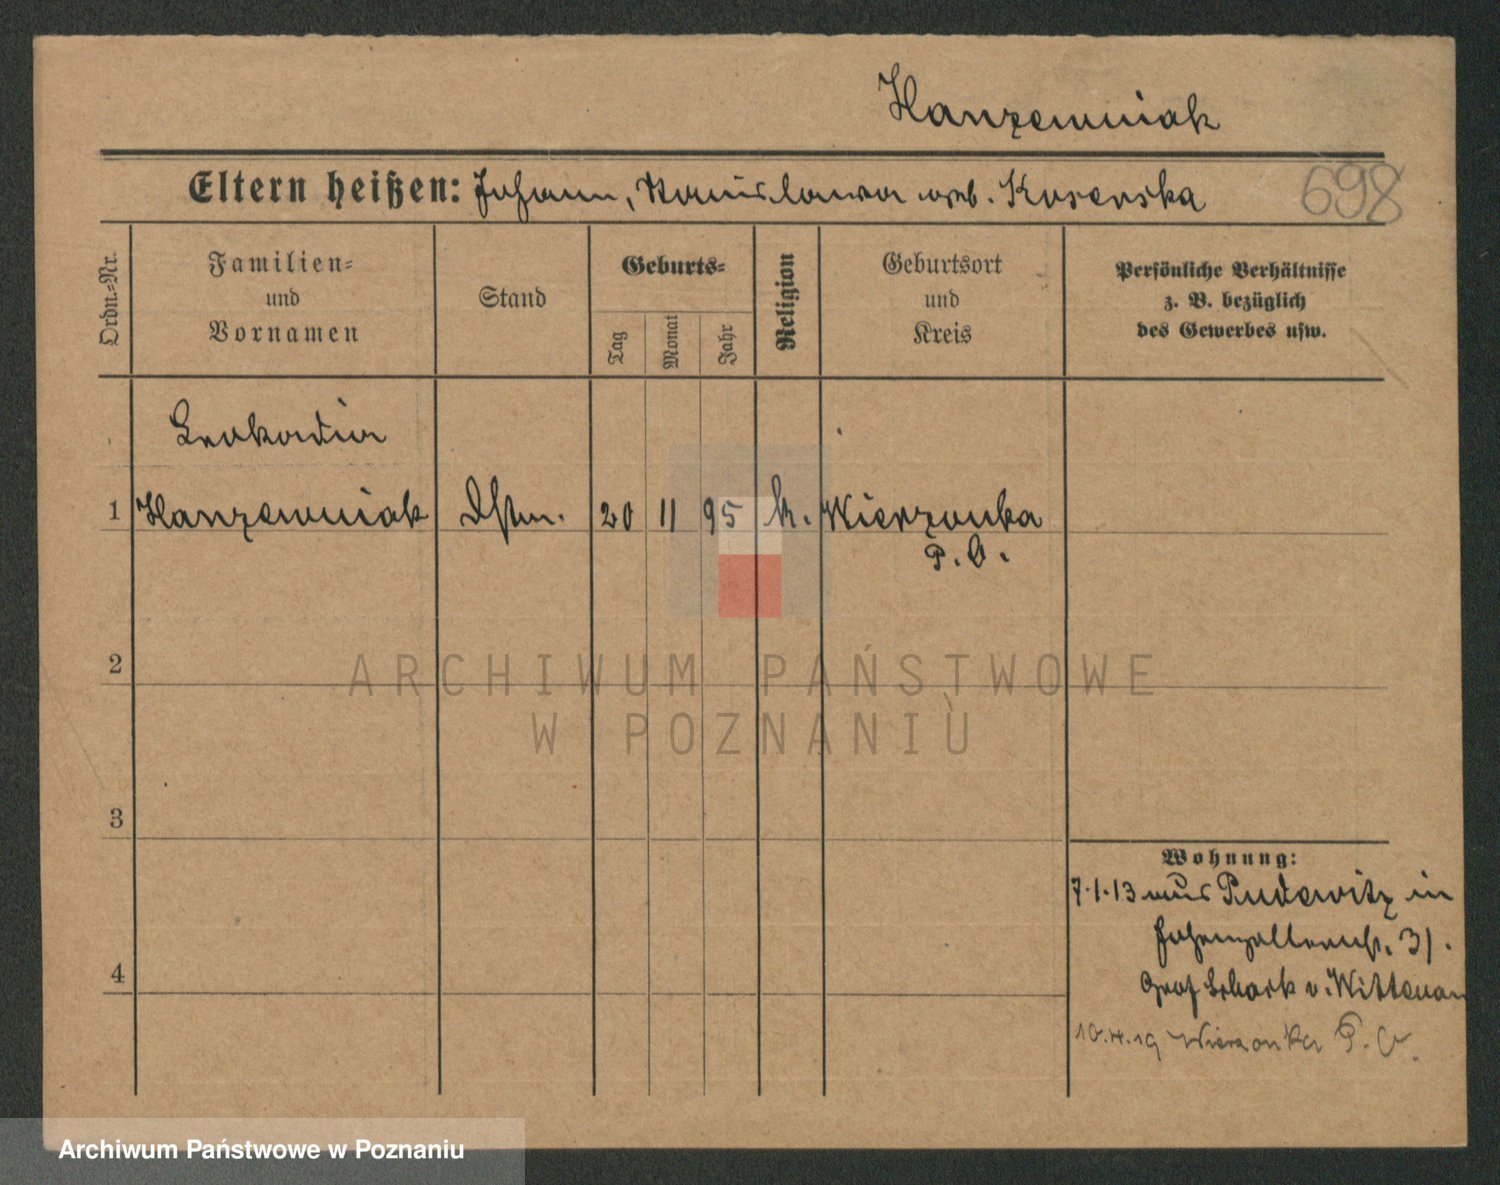 Hanzewniak
Eltern heißen: Johann, Stanislawa geb. Koserska
698
Ordn.-Nr.
Familien-
und
Vornamen
Stand
Geburts-
Tag
Monat
Jahr
Religion
Geburtsort
und
Kreis
Persönliche Verhältnisse
z. B. bezüglich
des Gewerbes usw.
Leokadia
1 Hanzewniak Dstm. 20 11 95 k. Wierzonka
P. O.
2
ARCHIWUM PAŃSTWOWE
W POZNANIU
3
Wohnung:
7.1.13 aus Pudewitz in
Hohenzollernstr. 31.
4
Graf Schack v. Wittenau
10.4.19 Wierzonka P. O.
Archiwum Państwowe w Poznaniu